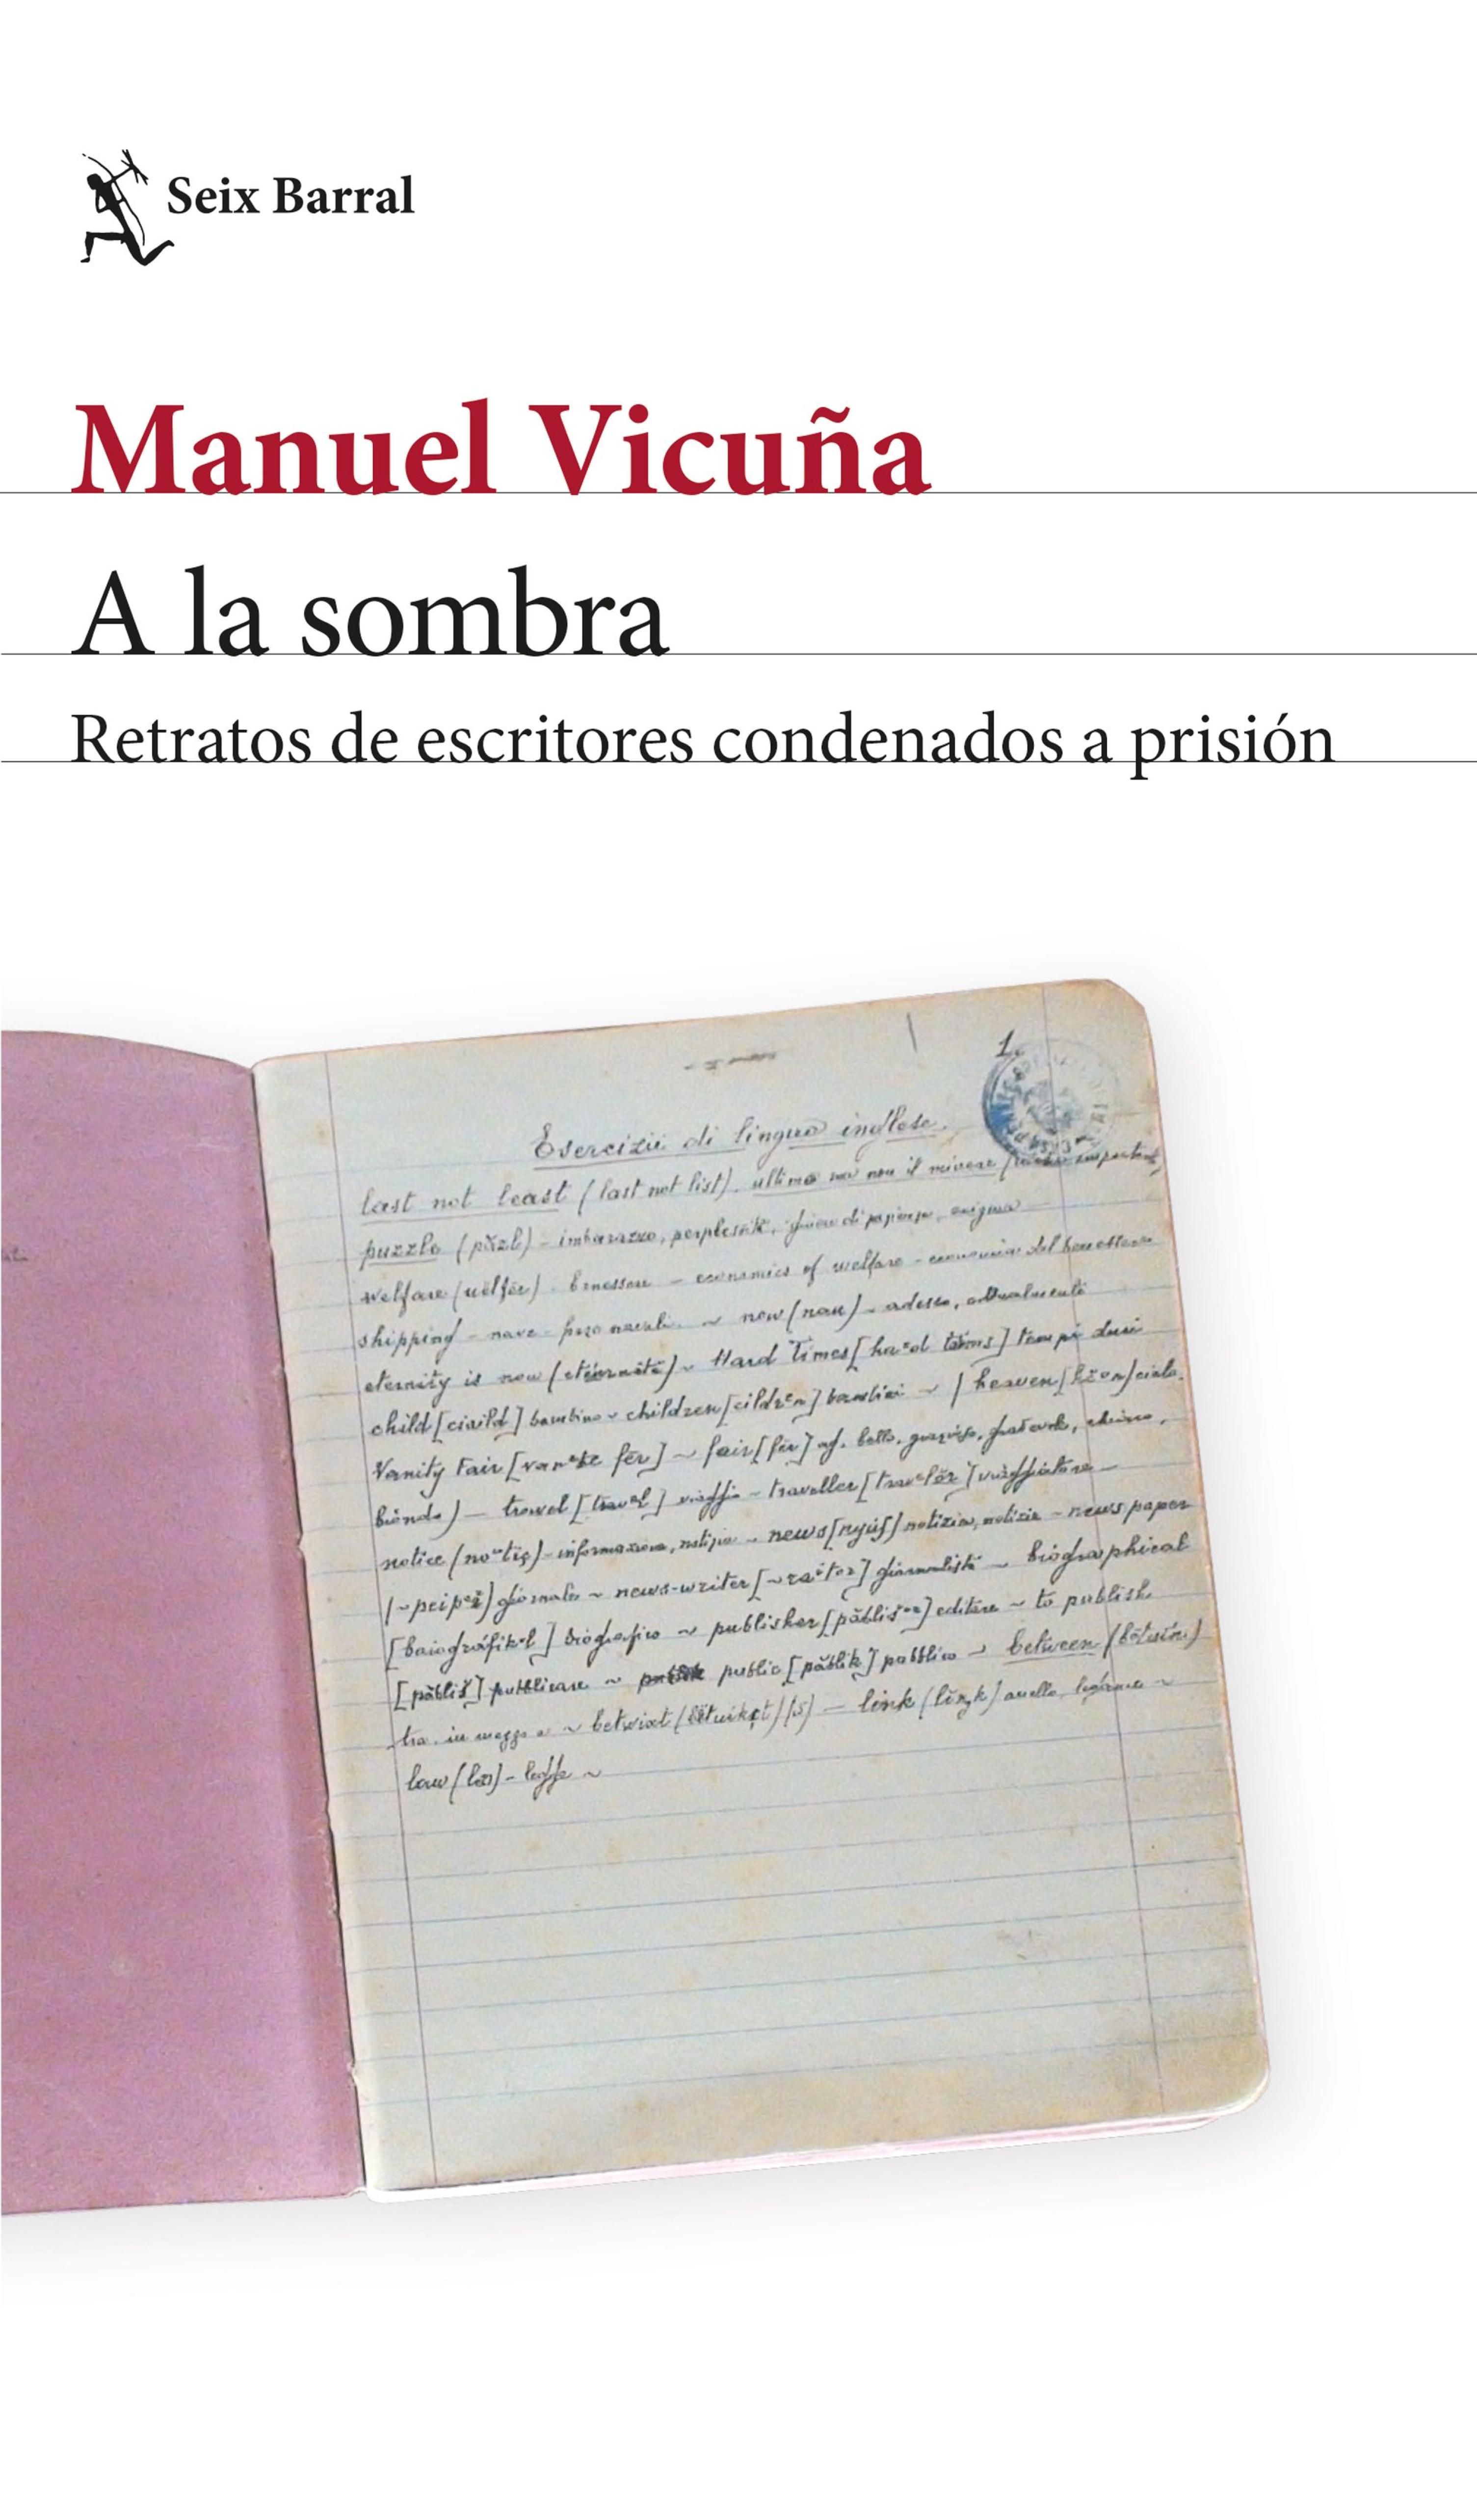 Seix Barral
Manuel Vicuña
A la sombra
Retratos de escritores condenados a prisión
1.
Esercizii di lingua inglese.
last not least (last not list). ultimo ma non il minore
puzzle (păzl) - imbarazzo, perplessità, enigma
welfare (uèlfër) - benessere - economics of welfare - economia del benessere
shipping - nave - now (nau) - adesso, attualmente
eternity is now - Hard Times tempi duri
child [ciaild] bambino - children [cildrᵉn] bambini ~ heaven cielo.
Vanity Fair ~ fair [fër] ag. bello,
biondo) — travel viaggio - traveller viaggiatore —
notice - informazione, notizia - news notizia, notizie - news paper
giornale ~ news-writer giornalista ~ biographical
biografico ~ publisher editore ~ to publish
pubblicare ~ public [păblik] pubblico - between
tra. in mezzo a ~ betwixt — link anello, legame ~
law - legge ~